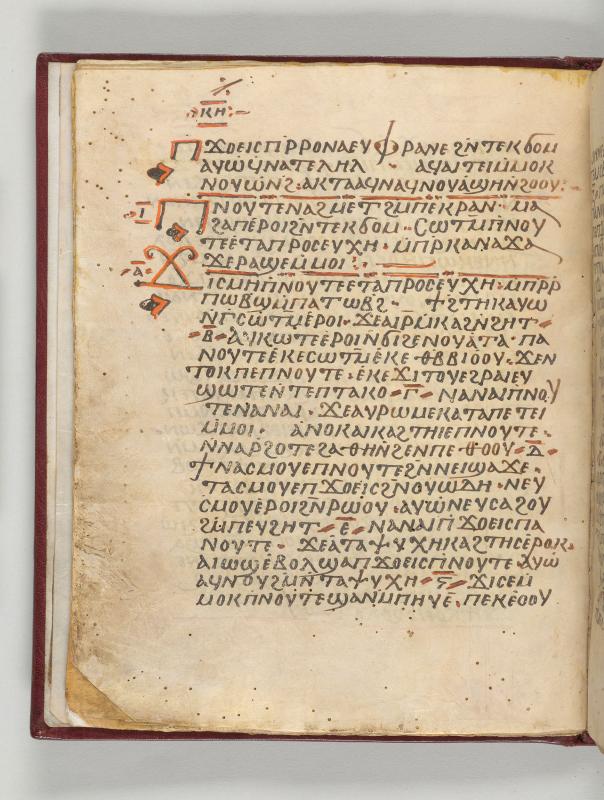 ⲕⲏ
ⲡϫⲟⲉⲓⲥ ⲡⲣⲣⲟ ⲛⲁⲉⲩⲫⲣⲁⲛⲉ ϩⲛⲧⲉⲕϭⲟⲙ
ⲁⲩⲱ ϥⲛⲁⲧⲉⲗⲏⲗ ⲁϥⲁⲓⲧⲉⲓ ⲙⲙⲟⲕ
ⲛⲟⲩⲱⲛϩ· ⲁⲕⲧⲁⲁϥ ⲛⲁϥ ⲛⲟⲩⲁϣⲏ ⲛϩⲟⲟⲩ·
ⲓ ⲡⲛⲟⲩⲧⲉ ⲛⲁϩⲙⲉⲧ ϩⲙⲡⲉⲕⲣⲁⲛ· ⲙⲁ
ϩⲁⲡ ⲉⲣⲟⲓ ϩⲛⲧⲉⲕϭⲟⲙ· ⲥⲱⲧⲙ ⲡⲛⲟⲩ
ⲧⲉ ⲉⲧⲁⲡⲣⲟⲥⲉⲩⲭⲏ· ⲙⲡⲣⲕⲁⲛⲁϫⲁ
ϫⲉ ⲣⲁϣⲉ ⲙⲙⲟⲓ:
ⲁ ϫⲓⲥⲙⲏ ⲡⲛⲟⲩⲧⲉ ⲉⲧⲁⲡⲣⲟⲥⲉⲩⲭⲏ· ⲙⲡⲣⲣ
ⲡⲱⲃϣ ⲙⲡⲁⲧⲱⲃϩ· ϯϩⲧⲏⲕ ⲁⲩⲱ
ⲛⲅⲥⲱⲧⲙ ⲉⲣⲟⲓ· ϫⲉ ⲁⲓⲣⲙⲕⲁϩ ⲛϩⲏⲧ
ⲃ ⲁⲩⲕⲱⲧⲉ ⲉⲣⲟⲓ ⲛϭⲓϩⲉⲛⲟⲩⲁⲧⲁ· ⲡⲁ
ⲛⲟⲩⲧⲉ ⲉⲕⲉⲥⲱⲧⲙ ⲉⲕⲉⲑⲃⲃⲓⲟⲟⲩ· ϫⲉ ⲛ
ⲧⲟⲕ ⲡⲉ ⲡⲛⲟⲩⲧⲉ· ⲉⲕⲉϫⲓⲧⲟⲩ ⲉϩⲣⲁⲓ ⲉⲩ
ϣⲱⲧⲉ ⲛⲧⲉⲡⲧⲁⲕⲟ ⲅ ⲛⲁⲛⲁⲓ ⲡⲛⲟⲩ
ⲧⲉ ⲛⲁⲛⲁⲓ· ϫⲉ ⲁⲩⲣⲱⲙⲉ ⲕⲁⲧⲁⲡⲉⲧⲉⲓ
ⲙⲙⲟⲓ· ⲁⲛⲟⲕ ⲁⲓⲕⲁϩⲧⲏⲓ ⲉⲡⲛⲟⲩⲧⲉ·
ⲛⲛⲁⲣϩⲟⲧⲉ ϩⲁⲑⲏ ⲛϩⲉⲛⲡⲉⲑⲟⲟⲩ· ⲇ
ϯⲛⲁⲥⲙⲟⲩ ⲉⲡⲛⲟⲩⲧⲉ ϩⲛⲛⲉⲓϣⲁϫⲉ·
ⲧⲁⲥⲙⲟⲩ ⲉⲡϫⲟⲉⲓⲥ ϩⲛⲟⲩⲱⲇⲏ· ⲛⲉⲩ
ⲥⲙⲟⲩ ⲉⲣⲟⲓ ϩⲛⲣⲱⲟⲩ· ⲁⲩⲱ ⲛⲉⲩⲥⲁϩⲟⲩ
ϩⲙⲡⲉⲩϩⲏⲧ ⲉ ⲛⲁⲛⲁⲓ ⲡϫⲟⲉⲓⲥ ⲡⲁ
ⲛⲟⲩⲧⲉ· ϫⲉ ⲁⲧⲁⲯⲩⲭⲏ ⲕⲁϩⲧⲏⲥ ⲉⲣⲟⲕ·
ⲁⲓⲱϣ ⲉⲃⲟⲗ ϣⲁⲡϫⲟⲉⲓⲥ ⲡⲛⲟⲩⲧⲉ· ⲁⲩⲱ
ⲁϥⲛⲟⲩϩⲙ ⲛⲧⲁⲯⲩⲭⲏ ⲋ ϫⲓⲥⲉ ⲙ
ⲙⲟⲕ ⲡⲛⲟⲩⲧⲉ ϣⲁⲙⲡⲏⲩⲉ· ⲡⲉⲕⲉⲟⲟⲩ